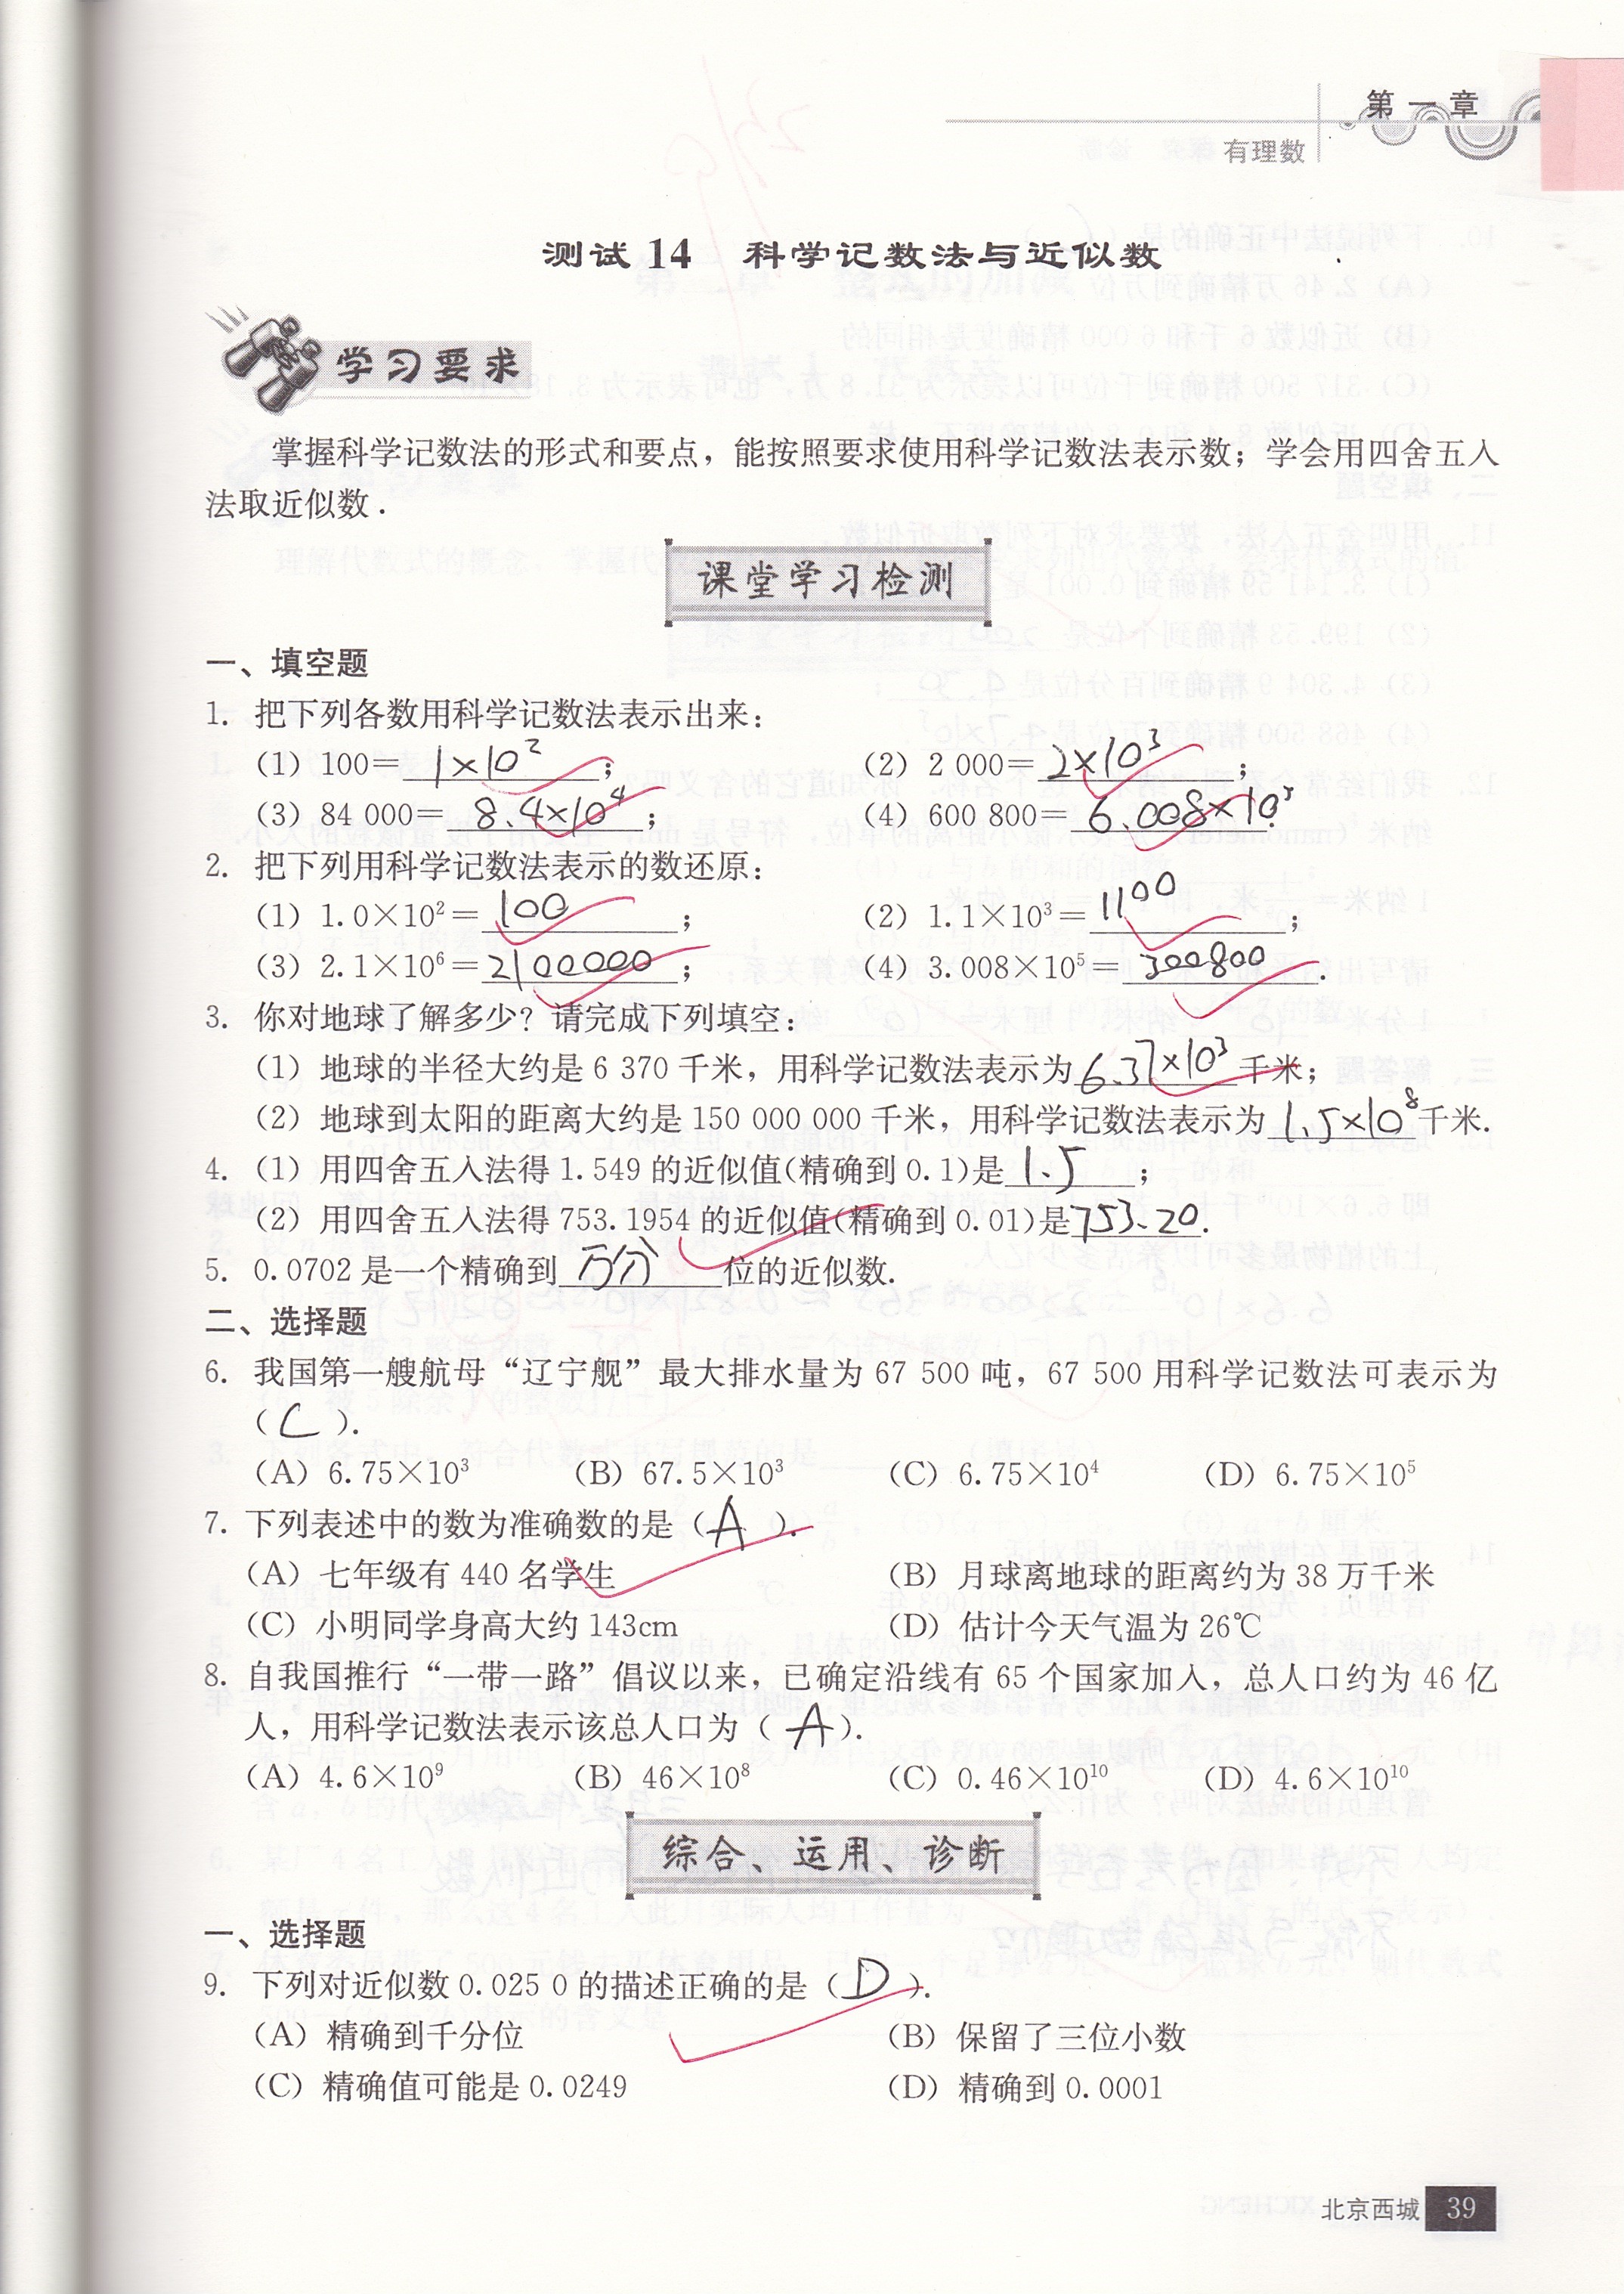 第一章
有理数
测试 14 科学记数法与近似数
学习要求
掌握科学记数法的形式和要点，能按照要求使用科学记数法表示数；学会用四舍五入
法取近似数．
课堂学习检测
一、填空题
1. 把下列各数用科学记数法表示出来：
（1）100＝1×10²； （2）2 000＝2×10³；
（3）84 000＝8.4×10⁴； （4）600 800＝6.008×10⁵.
2. 把下列用科学记数法表示的数还原：
（1）1.0×10²＝100； （2）1.1×10³＝1100；
（3）2.1×10⁶＝2100000； （4）3.008×10⁵＝300800.
3. 你对地球了解多少？请完成下列填空：
（1）地球的半径大约是 6 370 千米，用科学记数法表示为6.37×10³千米；
（2）地球到太阳的距离大约是 150 000 000 千米，用科学记数法表示为1.5×10⁸千米.
4. （1）用四舍五入法得 1.549 的近似值(精确到 0.1)是1.5；
（2）用四舍五入法得 753.1954 的近似值(精确到 0.01)是753.20.
5. 0.0702 是一个精确到万分位的近似数.
二、选择题
6. 我国第一艘航母“辽宁舰”最大排水量为 67 500 吨，67 500 用科学记数法可表示为
（C）.
（A）6.75×10³ （B）67.5×10³ （C）6.75×10⁴ （D）6.75×10⁵
7. 下列表述中的数为准确数的是（A）.
（A）七年级有 440 名学生 （B）月球离地球的距离约为 38 万千米
（C）小明同学身高大约 143cm （D）估计今天气温为 26℃
8. 自我国推行“一带一路”倡议以来，已确定沿线有 65 个国家加入，总人口约为 46 亿
人，用科学记数法表示该总人口为（A）.
（A）4.6×10⁹ （B）46×10⁸ （C）0.46×10¹⁰ （D）4.6×10¹⁰
综合、运用、诊断
一、选择题
9. 下列对近似数 0.025 0 的描述正确的是（D）.
（A）精确到千分位 （B）保留了三位小数
（C）精确值可能是 0.0249 （D）精确到 0.0001
北京西城 39